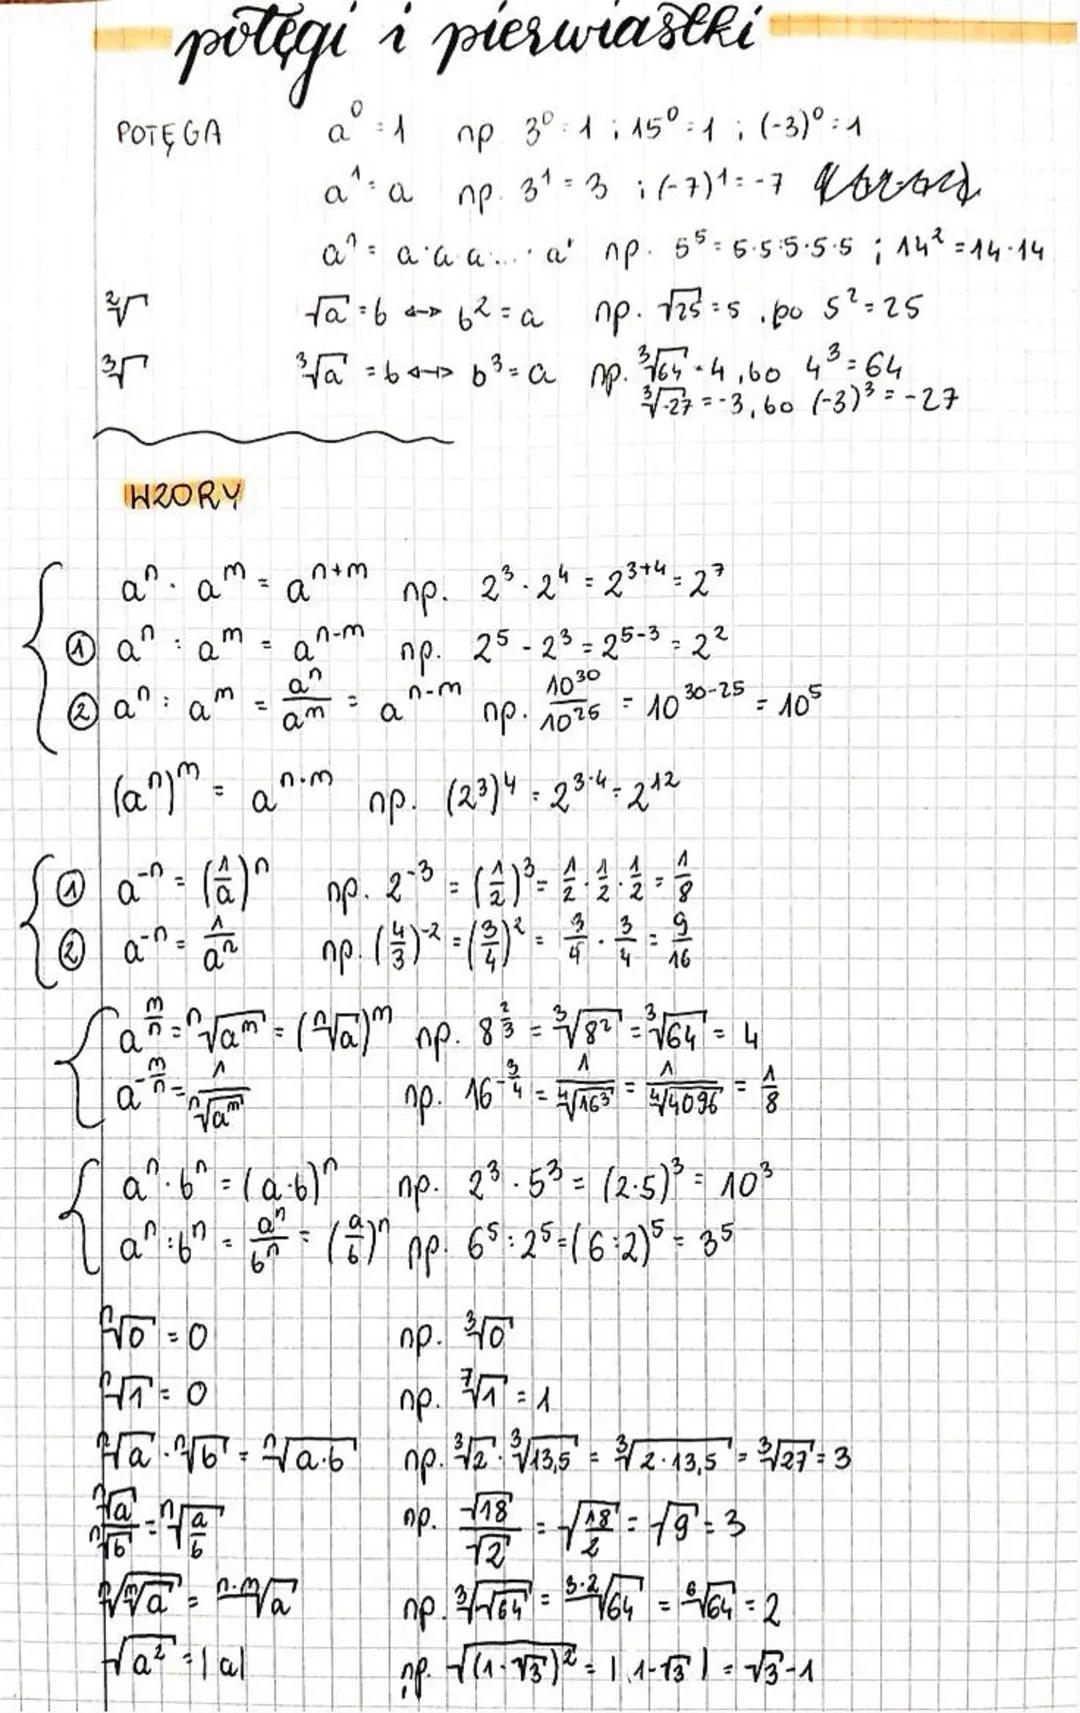 potęgi i pierwiastki
POTĘGA a⁰ = 1 np 3⁰ = 1 ; 15⁰ = 1 ; (-3)⁰ = 1
a¹ = a np. 3¹ = 3 ; (-7)¹ = -7
aⁿ = a·a·a·...·a np. 5⁵ = 5·5·5·5·5 ; 14² = 14·14
²√ √a = b ↔ b² = a np. √25 = 5, bo 5² = 25
³√ ³√a = b ↔ b³ = a np. ³√64 = 4, bo 4³ = 64
³√-27 = -3, bo (-3)³ = -27
WZORY
aⁿ · aᵐ = aⁿ⁺ᵐ np. 2³ · 2⁴ = 2³⁺⁴ = 2⁷
① aⁿ : aᵐ = aⁿ⁻ᵐ np. 2⁵ - 2³ = 2⁵⁻³ = 2²
② aⁿ : aᵐ = aⁿ/aᵐ = aⁿ⁻ᵐ np. 10³⁰/10²⁵ = 10³⁰⁻²⁵ = 10⁵
(aⁿ)ᵐ = a^(n·m) np. (2³)⁴ = 2^(3·4) = 2¹²
① a⁻ⁿ = (1/a)ⁿ np. 2⁻³ = (1/2)³ = 1/2 · 1/2 · 1/2 = 1/8
② a⁻ⁿ = 1/aⁿ np. (4/3)⁻² = (3/4)² = 3/4 · 3/4 = 9/16
a^(m/n) = ⁿ√aᵐ = (ⁿ√a)ᵐ np. 8^(2/3) = ³√8² = ³√64 = 4
a^(-m/n) = 1/ⁿ√aᵐ np. 16^(-3/4) = 1/⁴√16³ = 1/⁴√4096 = 1/8
aⁿ · bⁿ = (a·b)ⁿ np. 2³ · 5³ = (2·5)³ = 10³
aⁿ : bⁿ = aⁿ/bⁿ = (a/b)ⁿ np. 6⁵ : 2⁵ = (6:2)⁵ = 3⁵
ⁿ√0 = 0 np. ³√0
ⁿ√1 = 0 np. ⁷√1 = 1
ⁿ√a · ⁿ√b = ⁿ√a·b np. ³√2 · ³√13,5 = ³√2·13,5 = ³√27 = 3
ⁿ√a/ⁿ√b = ⁿ√(a/b) np. √18/√2 = √(18/2) = √9 = 3
ⁿ√ᵐ√a = ⁿ·ᵐ√a np. ³√√64 = ³·²√64 = ⁶√64 = 2
√a² = |a| np. √(1-√3)² = |1-√3| = √3-1